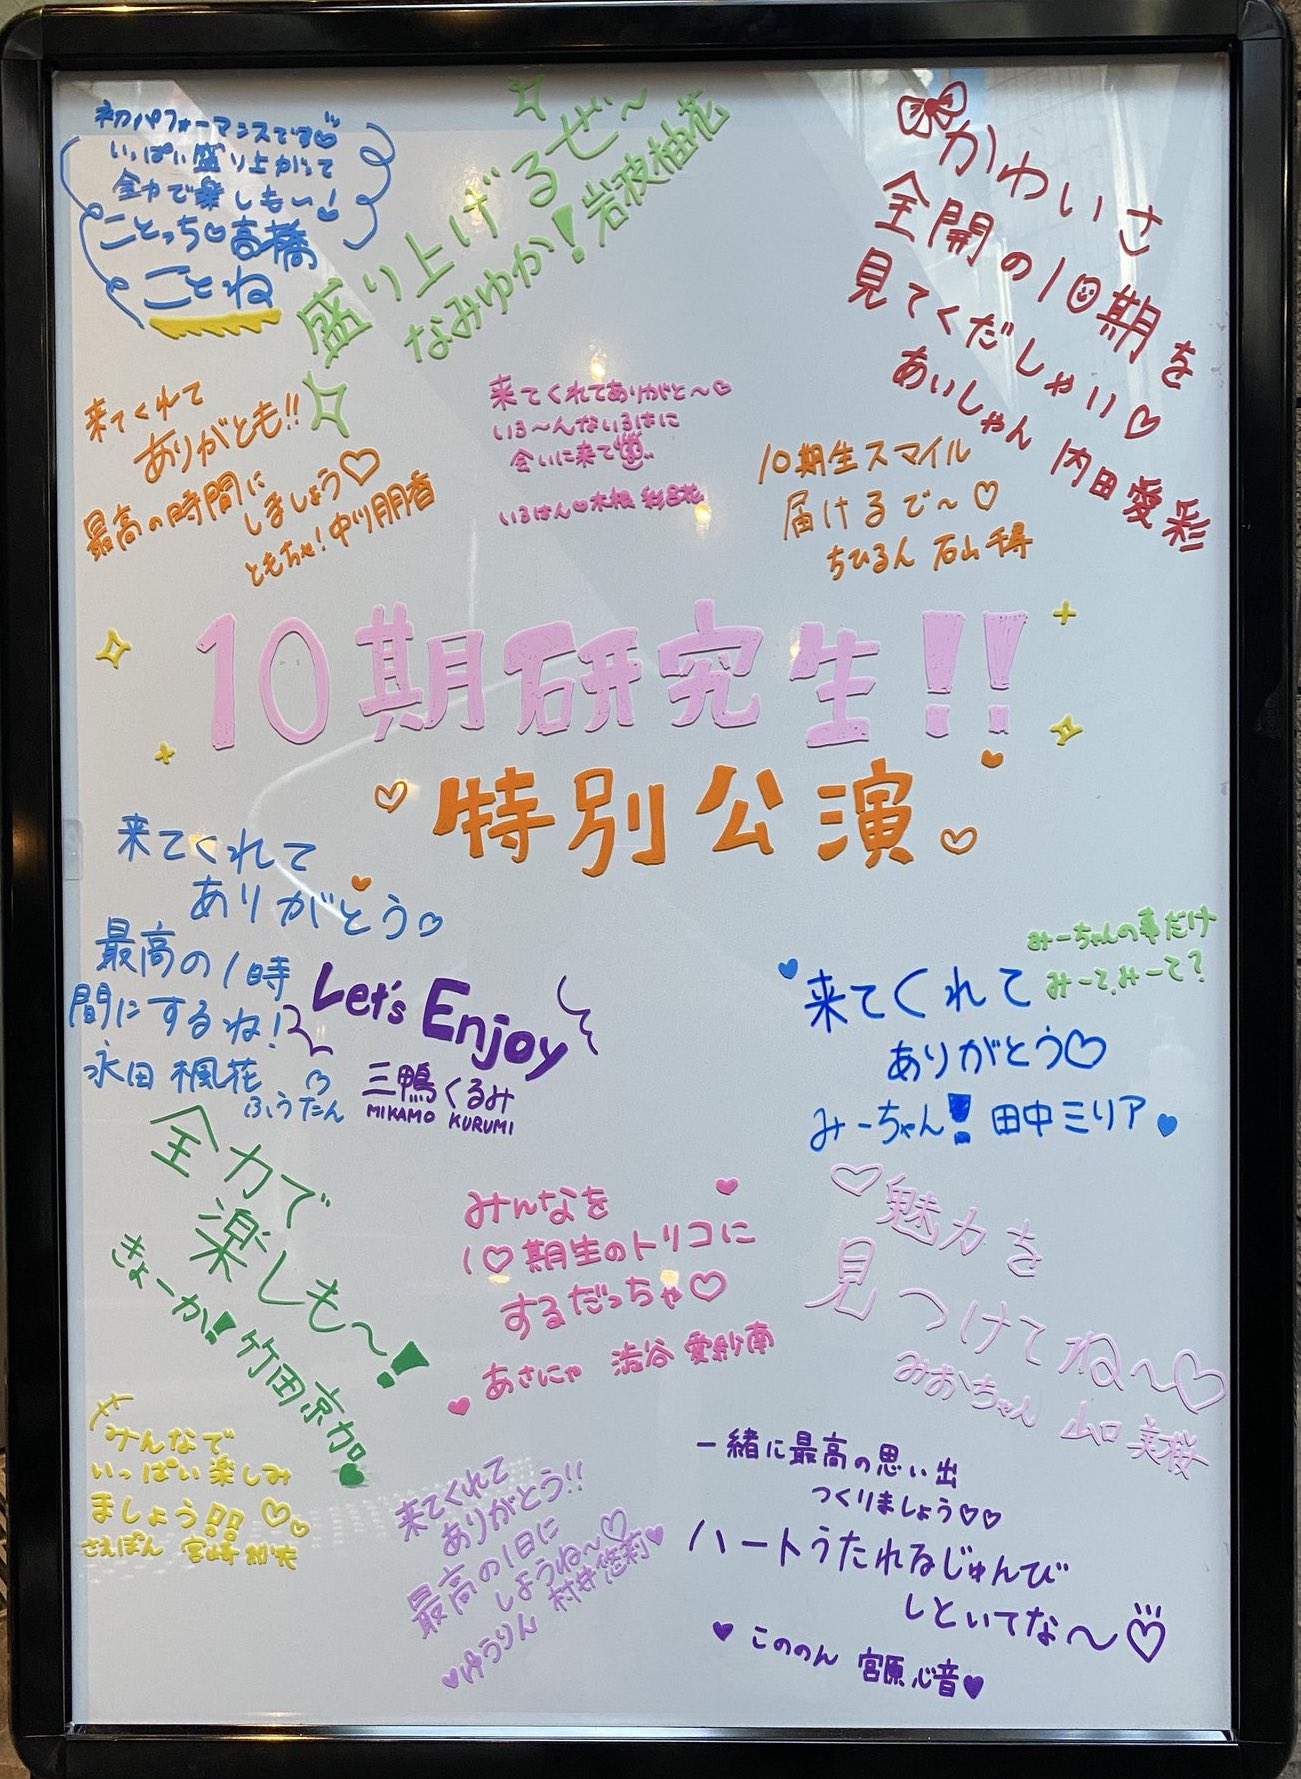 初パフォーマンスです♡
いっぱい盛り上がって
全力で楽しも〜!
ことっち♡高橋
ことね
盛り上げるぜ〜
なみゆか!岩波柚花
かわいさ
全開の10期を
見てくだしゃい♡
あいしゃん 内田愛彩
来てくれて
ありがとも!!
最高の時間に
しましょう♡
ともちゃ!中川朋香
来てくれてありがと〜♡
いろ〜んないろはに
会いに来て
いろはん♡木根 彩呂花
10期生スマイル
届けるで〜♡
ちひろん 石山千尋
10期研究生!!
♡特別公演♡
来てくれて
ありがとう♡
最高の1時
間にするね!
永田 楓花
ふうたん
Let's Enjoy
三鴨くるみ
MIKAMO KURUMI
みーちゃんの事だけ
みーて、みーて?
来てくれて
ありがとう♡
みーちゃん! 田中ミリア
全力で
楽しも〜!
きょーか!竹田京加
みんなを
10期生のトリコに
するだっちゃ♡
あさにゃ 澁谷 愛紗南
♡魅力を
見つけてね〜♡
みおちゃん 山口 美桜
みんなで
いっぱい楽しみ
ましょう!! ♡♡
さえぽん 宮崎
来てくれて
ありがとう!!
最高の1日に
しようね〜♡
ゆうりん 村井悠莉
一緒に最高の思い出
つくりましょう♡♡
ハートうたれるじゅんび
しといてな〜♡
♥このん 宮原心音♥